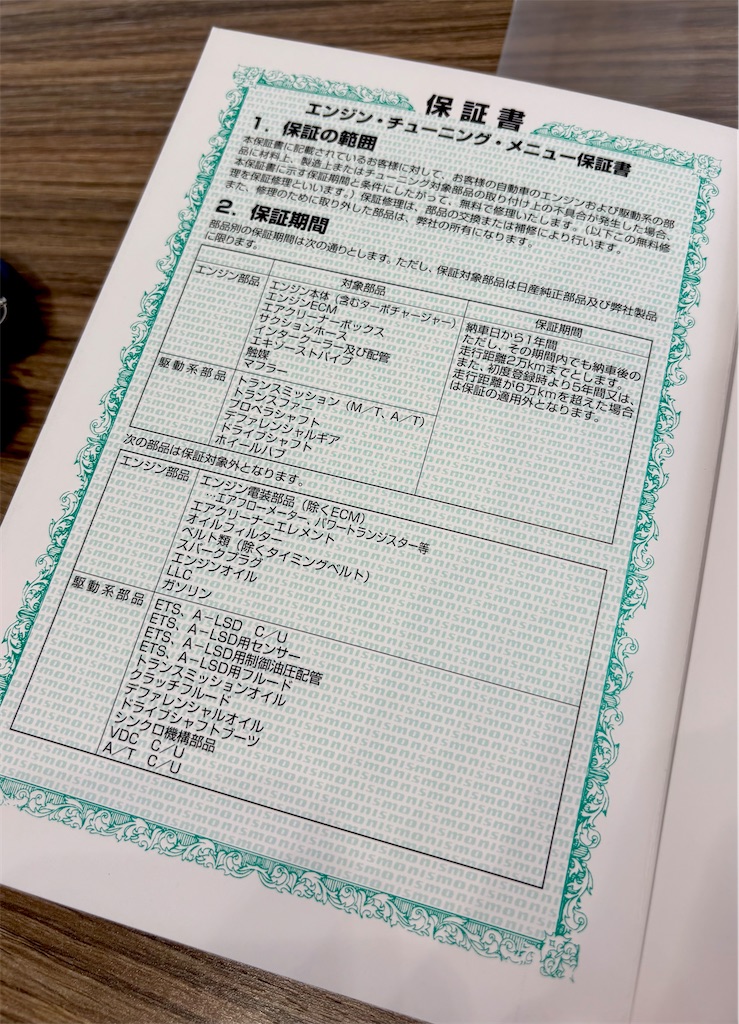 保証書
エンジン・チューニング・メニュー保証書
1．保証の範囲
本保証書に記載されているお客様に対して、お客様の自動車のエンジンおよび駆動系の部
品に材料上、製造上またはチューニング対象部品の取り付け上の不具合が発生した場合、
本保証書に示す保証期間と条件にしたがって、無料で修理いたします。（以下この無料修
理を保証修理といいます。）保証修理は、部品の交換または補修により行います。
また、修理のために取り外した部品は、弊社の所有になります。
2．保証期間
部品別の保証期間は次の通りとします。ただし、保証対象部品は日産純正部品及び弊社製品
に限ります。
対象部品 保証期間
エンジン部品
エンジン本体（含むターボチャージャー）
エンジンECM
エアクリーナーボックス
サクションホース
インタークーラー及び配管
エキゾーストパイプ
触媒
マフラー
駆動系部品
トランスミッション（M／T、A／T）
トランスファー
プロペラシャフト
デファレンシャルギア
ドライブシャフト
ホイールハブ
納車日から1年間
ただし、その期間内でも納車後の
走行距離2万kmまでとします。
また、初度登録時より5年間又は、
走行距離が6万kmを超えた場合
は保証の適用外となります。
次の部品は保証対象外となります。
エンジン部品
エンジン電装部品（除くECM）
…エアフローメーター、パワートランジスター等
エアクリーナーエレメント
オイルフィルター
ベルト類（除くタイミングベルト）
スパークプラグ
エンジンオイル
LLC
ガソリン
駆動系部品
ETS、A－LSD C／U
ETS、A－LSD用センサー
ETS、A－LSD用制御油圧配管
ETS、A－LSD用フルード
トランスミッションオイル
クラッチフルード
デファレンシャルオイル
ドライブシャフトブーツ
シンクロ機構部品
VDC C／U
A／T C／U